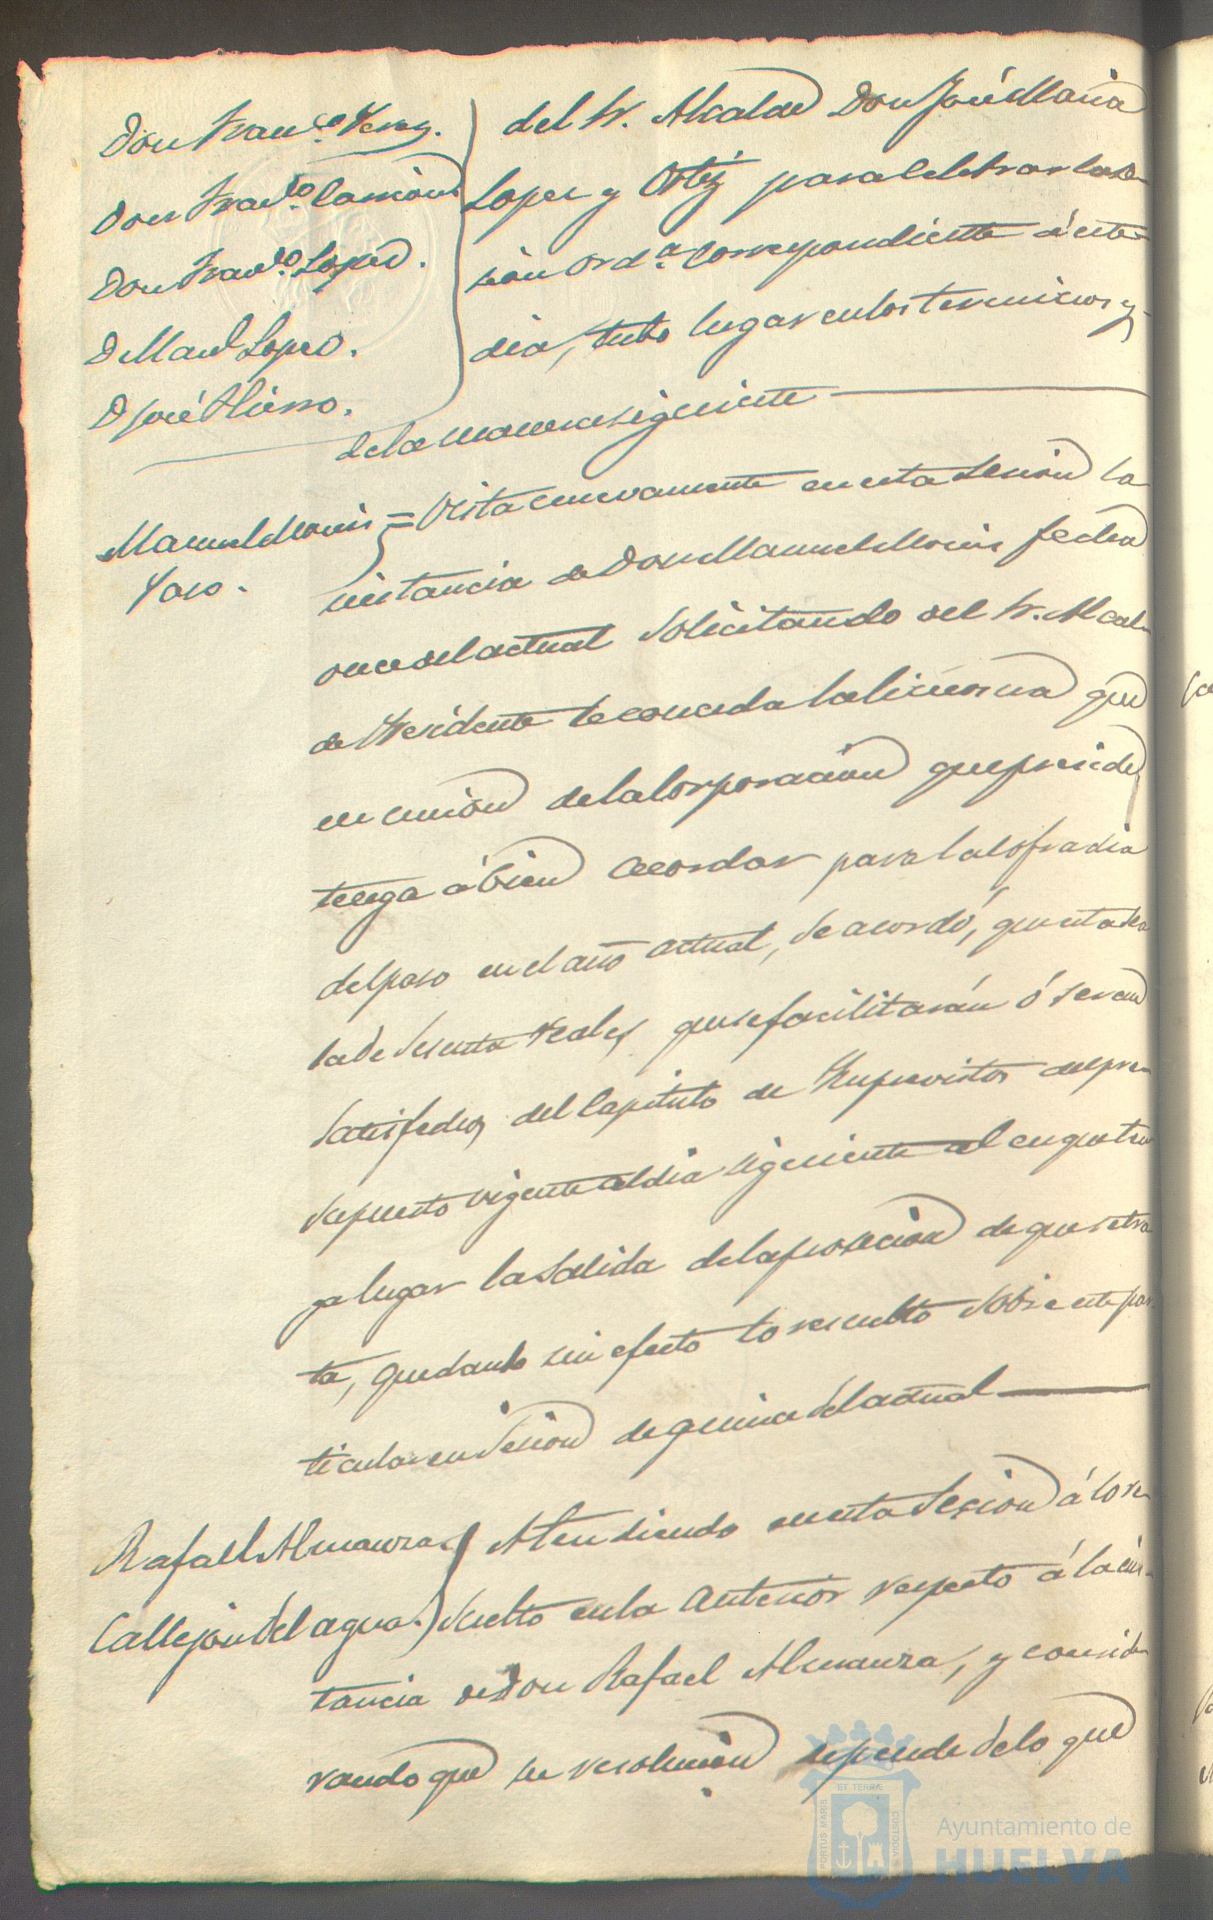 Don Franco Perez.
Don Franco
Don Franco Lopez.
D Manl Lopez.
D José Hierro.
del Sr. Alcalde Don José Maria
Lopez y Ortiz para celebrar la se-
sion Orda. correspondiente á este
dia, tubo lugar en los terminos y
de la manera siguiente
Manuel Mois
Paso.
= Vista nuevamente en esta Sesion la
instancia de Don Manuel Mois fecha
once del actual solicitando del Sr. Alcal-
de Presidente le conceda la limosna que
en union de la Corporacion que preside,
tenga á bien acordar para la Cofradia
del paso en el año actual, se acordó, que esta sea
la de sesenta reales, que se facilitarán ó seran
satisfechos, del Capitulo de Imprevistos del pre-
supuesto vigente al dia siguiente al en que ten-
ga lugar la salida de la procecion de que se tra
ta, quedando sin efecto lo resuelto sobre este par-
ticular en Sesion de quince del actual
Rafael Almanza
Callejon del agua.
Atendiendo en esta Sesion á lo re-
suelto en la Anterior respecto á la ins-
tancia de Don Rafael Almanza, y conside-
rando que su resolucion depende de lo que
PORTUS MARIS
ET TERRÆ
CUSTODIA
Ayuntamiento de
HUELVA